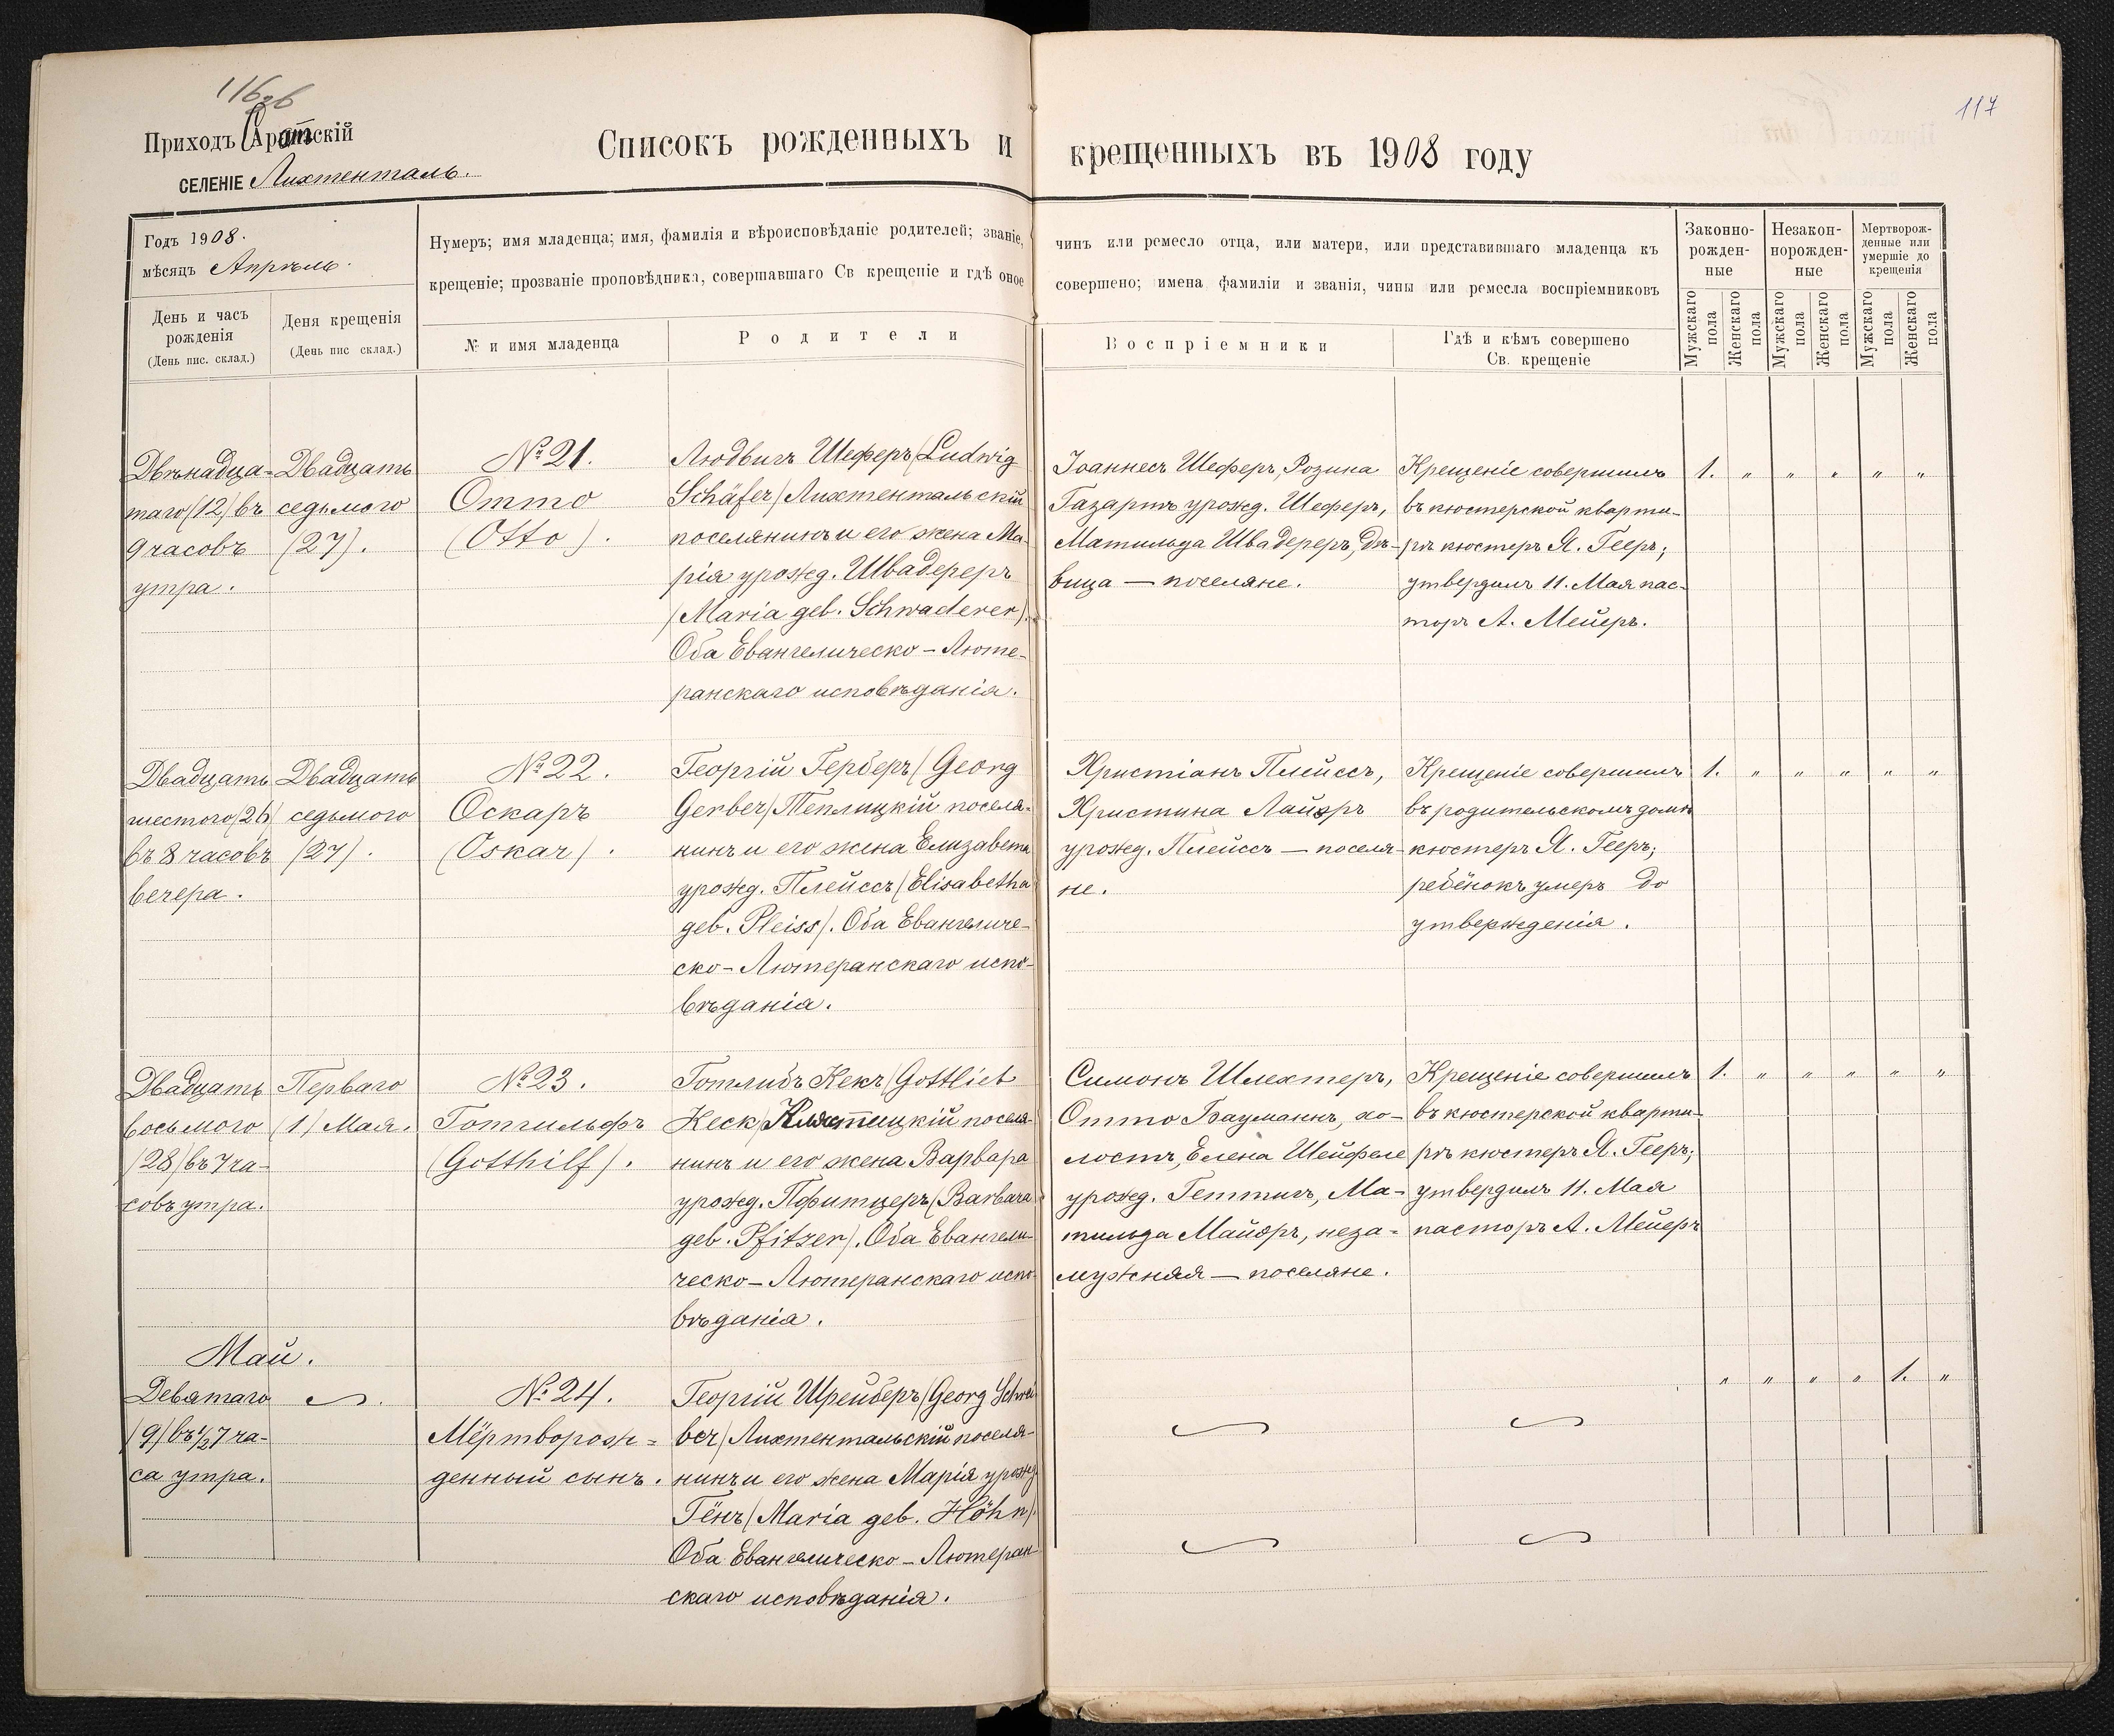 116об
117
Приходъ Саратскій
СЕЛЕНІЕ Лихтенталь.
Списокъ рожденныхъ и крещенныхъ въ 1908 году
Годъ 1908.
мѣсяцъ Апрѣль.
День и часъ
рожденія
(День пис. склад.)
Деня крещенія
(День пис склад.)
Нумеръ; имя младенца; имя, фамилія и вѣроисповѣданіе родителей; званіе, чинъ или ремесло отца, или матери, или представившаго младенца къ
крещеніе; прозваніе проповѣдника, совершавшаго Св крещеніе и гдѣ оное совершено; имена фамиліи и званія, чины или ремесла воспріемниковъ
№ и имя младенца
Родители
Воспріемники
Гдѣ и кѣмъ совершено
Св. крещеніе
Законно-
рожден-
ные
Незакон-
норожден-
ные
Мертворож-
денные или
умершіе до
крещенія
Мужскаго
пола
Женскаго
пола
Мужскаго
пола
Женскаго
пола
Мужскаго
пола
Женскаго
пола
Двѣнадца-
таго (12) въ
9 часовъ
утра.
Двадцать
седьмого
(27).
№ 21.
Отто
(Otto).
Людвигъ Шеферъ (Ludwig
Schäfer) Лихтентальскій
поселянинъ и его жена Ма-
рія урожд. Швадереръ
(Maria geb. Schwaderer).
Оба Евангелическо-Люте-
ранскаго исповѣданія.
Іоаннесъ Шеферъ, Розина
Газартъ урожд. Шеферъ,
Матильда Швадереръ, дѣ-
вица — поселяне.
Крещеніе совершилъ
въ кюстерской кварти-
рѣ кюстеръ Я. Гееръ;
утвердилъ 11. Мая пас-
торъ А. Мейеръ.
1. " " " " "
Двадцать
шестого (26)
въ 8 часовъ
вечера.
Двадцать
седьмого
(27).
№ 22.
Оскаръ
(Oskar).
Георгій Герберъ (Georg
Gerber) Теплицкій поселя-
нинъ и его жена Елизавета
урожд. Плейссъ (Elisabetha
geb. Pleiss). Оба Евангеличе-
ско-Лютеранскаго испо-
вѣданія.
Христіанъ Плейссъ,
Христина Лайэръ
урожд. Плейссъ — поселя-
не.
Крещеніе совершилъ
въ родительскомъ домѣ
кюстеръ Я. Гееръ;
ребёнокъ умеръ до
утвержденія.
1. " " " " "
Двадцать
восьмого
(28) въ 7 ча-
совъ утра.
Перваго
(1) Мая.
№ 23.
Готгильфъ
(Gotthilf).
Готлибъ Кекъ (Gottlieb
Keck) Клястицкій поселя-
нинъ и его жена Варвара
урожд. Пфитцеръ (Barbara
geb. Pfitzer). Оба Евангели-
ческо-Лютеранскаго испо-
вѣданія.
Симонъ Шлехтеръ,
Отто Бауманнъ, хо-
лостъ, Елена Шейфеле
урожд. Геттигъ, Ма-
тильда Майэръ, неза-
мужняя — поселяне.
Крещеніе совершилъ
въ кюстерской кварти-
рѣ кюстеръ Я. Гееръ;
утвердилъ 11. Мая
пасторъ А. Мейеръ
1. " " " " "
Май.
Девятаго
(9) въ ½7 ча-
са утра.
№ 24.
Мёртворож-
денный сынъ.
Георгій Шрейберъ (Georg Schrei-
ber) Лихтентальскій поселя-
нинъ и его жена Марія урожд.
Гёнъ (Maria geb. Höhn).
Оба Евангелическо-Лютеран-
скаго исповѣданія.
" " " " 1. "